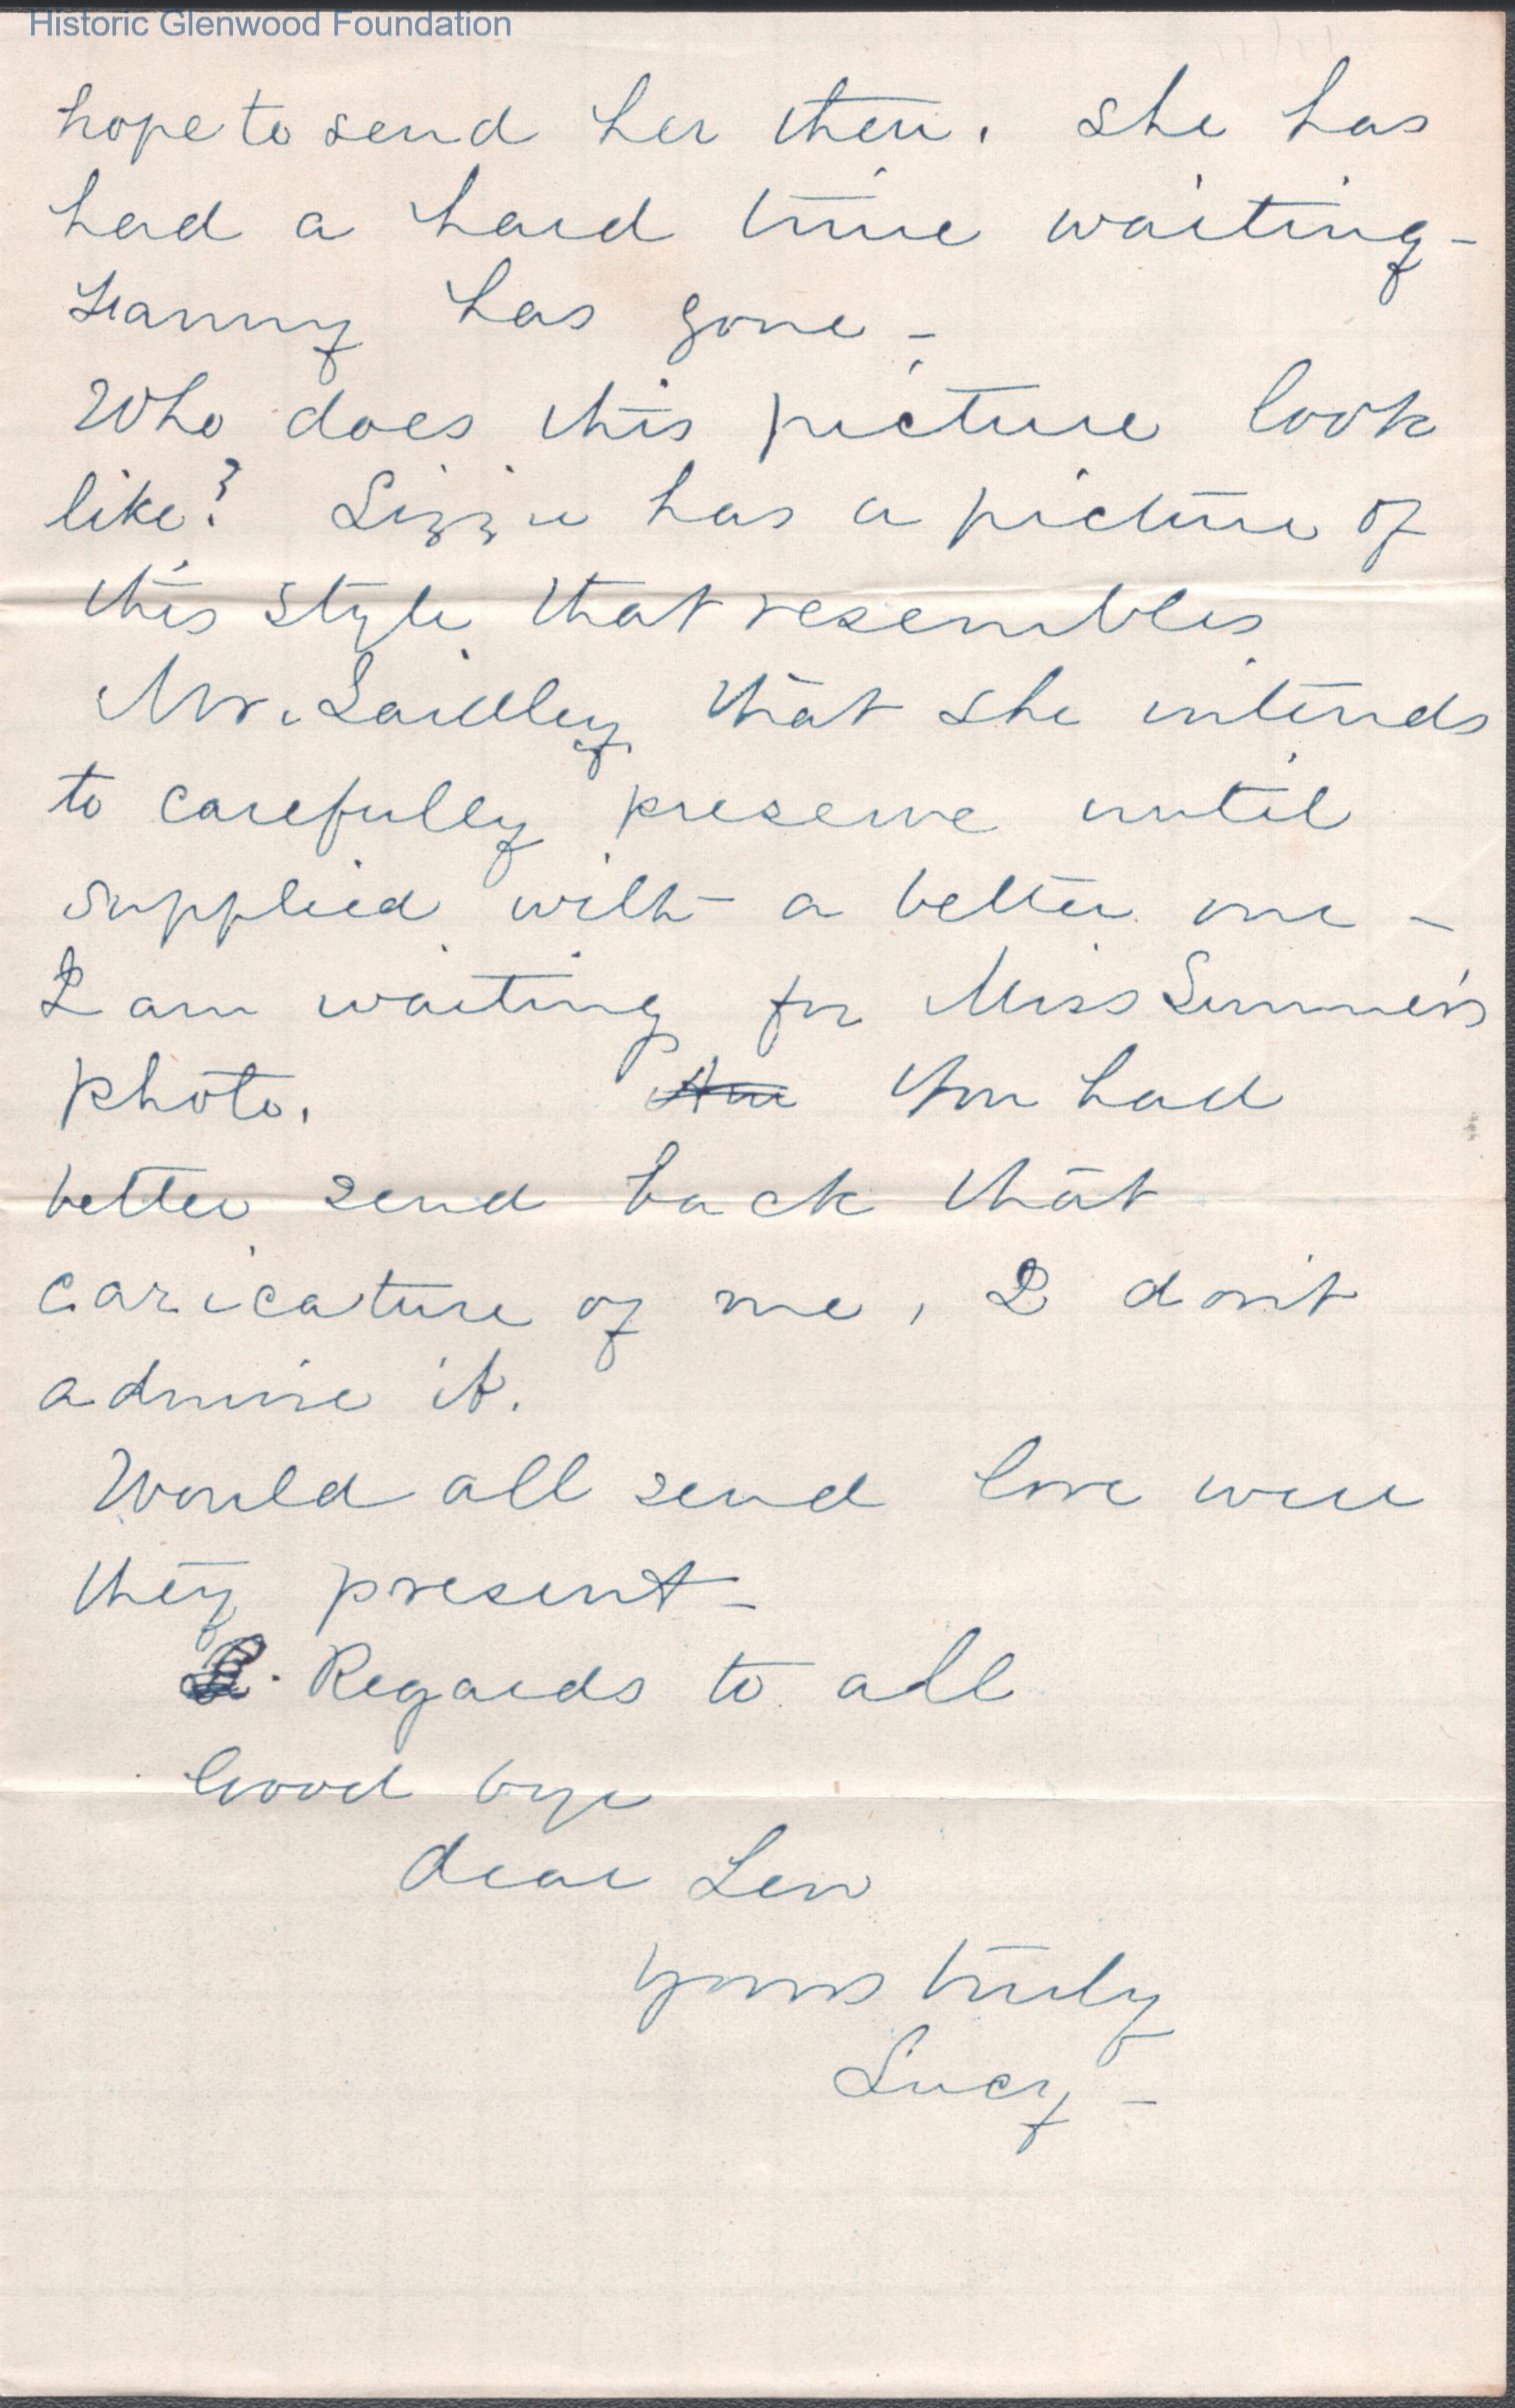 Historic Glenwood Foundation
hope to send her then. She has
had a hard time waiting -
Fanny has gone -
Who does this picture look
like? Lizzie has a picture of
this style that resembles
Mr. Laidley that she intends
to carefully preserve until
supplied with a better one -
I am waiting for Miss Summer's
photo. You had
better send back that
caricature of me, I don't
admire it.
Would all send love were
they present -
Regards to all
Good bye
dear Lew
Yours truly
Lucy -